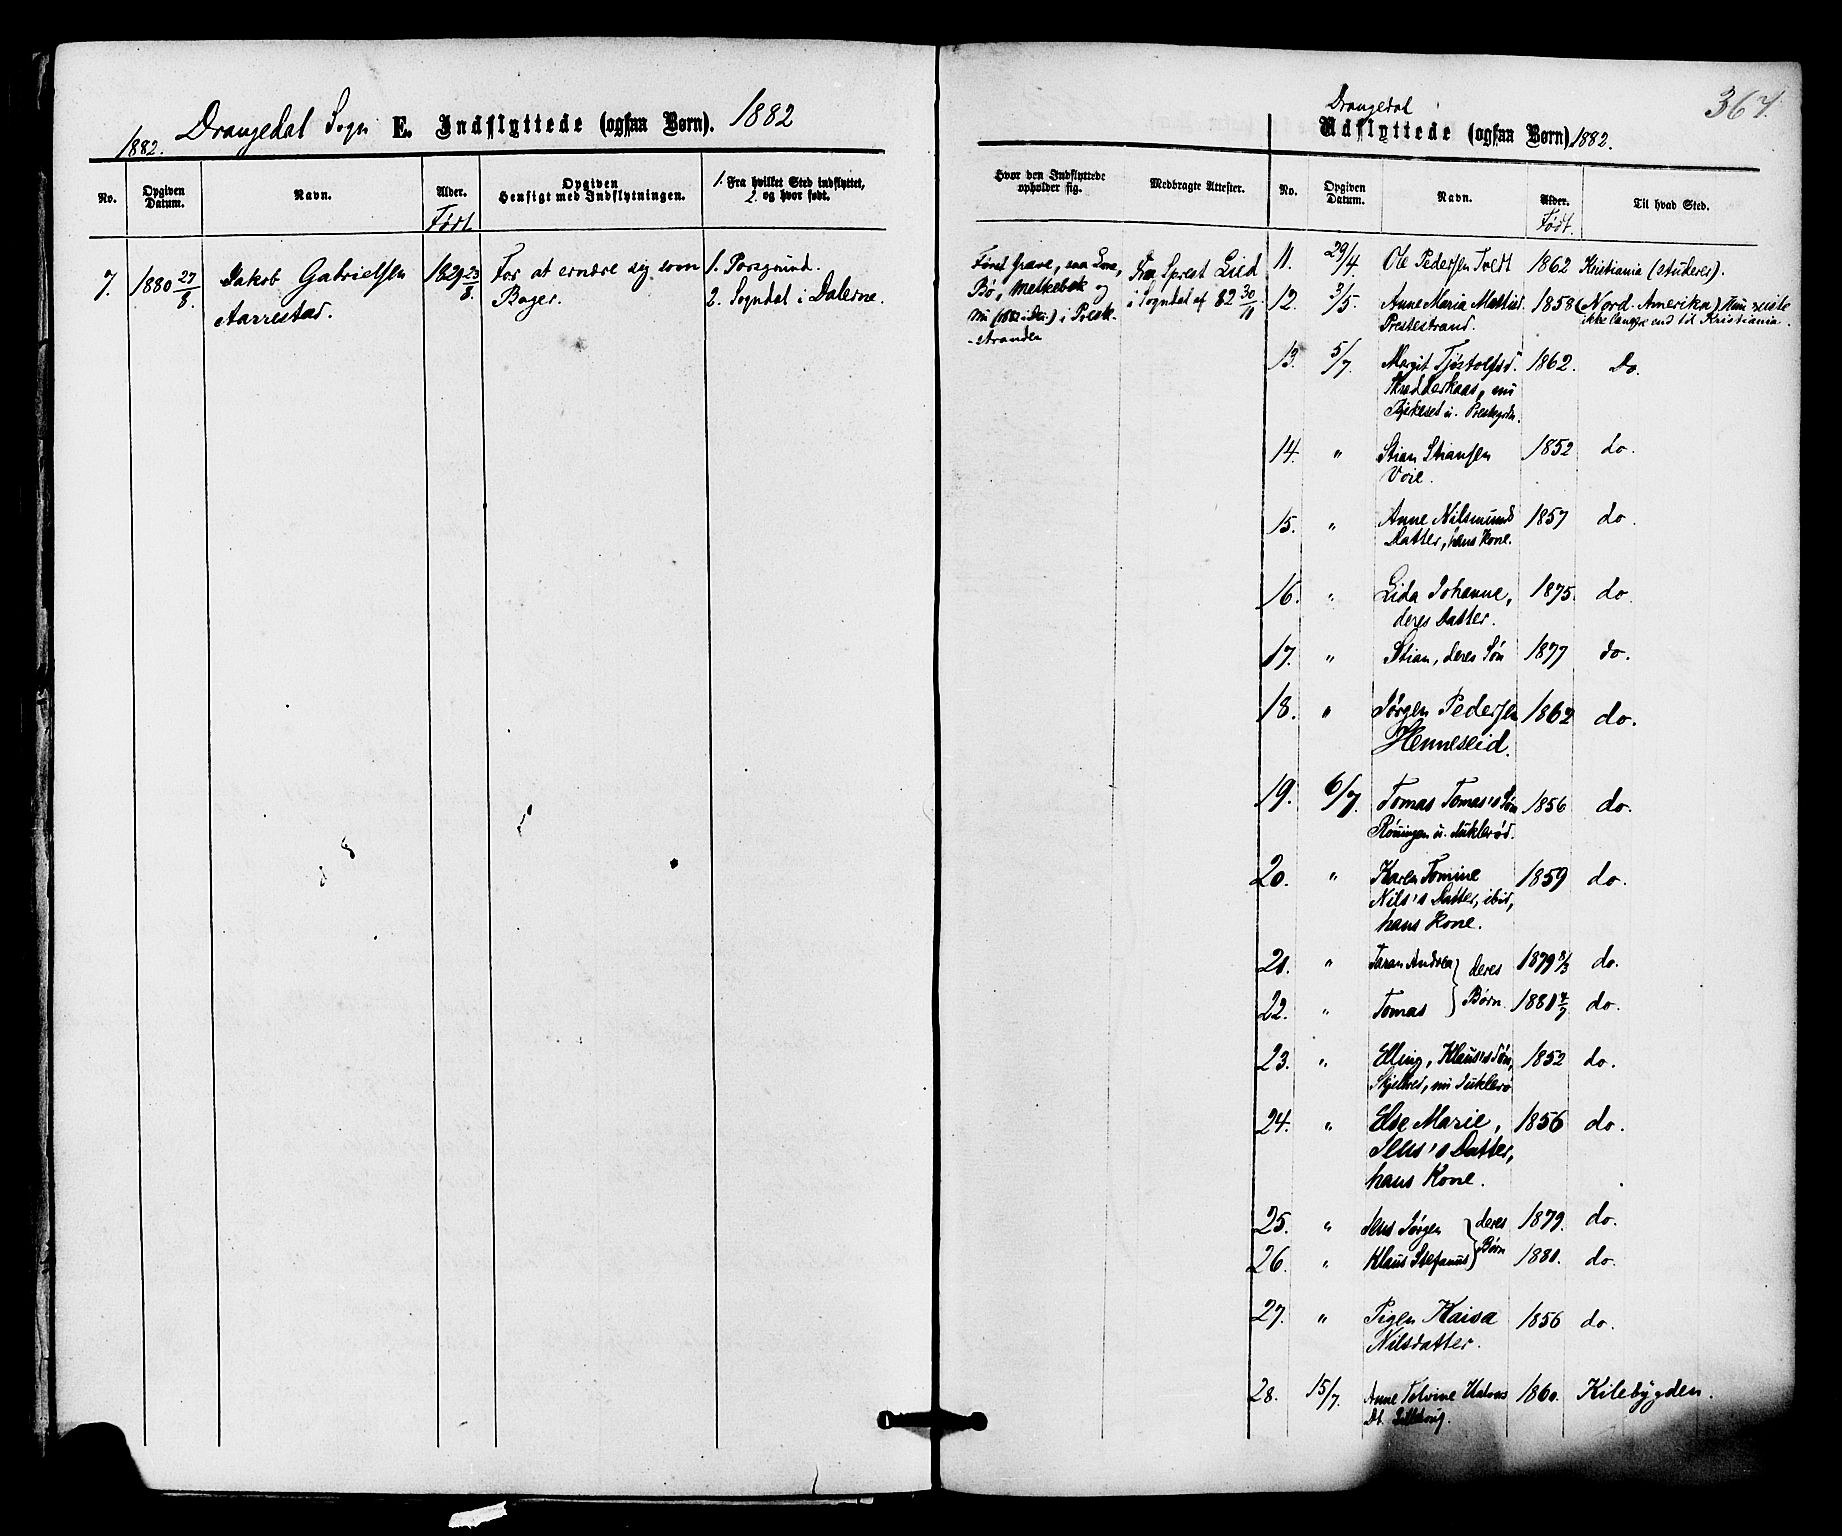 Drangedal Sogn E. Indflyttede (ogsaa Børn). 1882
1882.
No.
Opgiven Datum.
Navn.
Alder.
Født
Opgiven Hensigt med Indflytningen.
1. Fra hvilket Sted indflyttet,
2. og hvor født.
7. 1880 27/8. Jakob Gabrielsen 1829 23/8. For at ernære sig som 1. Porsgrund.
Aarrestad. Bager. 2. Sogndal i Dalerne.
Drangedal
367.
Udflyttede (ogsaa Børn) 1882.
Hvor den Indflyttede opholder sig.
Medbragte Attester.
No.
Opgiven Datum.
Navn.
Alder.
Født.
Til hvad Sted.
Først Græve, saa
Bø, Melkebek og
nu i Preste-
-stranden
Fra Sprest Lied
i Sogndal af 82 30/11.
11. 29/4. Ole Pedersen Tvedt 1862 Kristiania (studerer).
12. 3/5. Anne Maria 1858 (Nord-Amerika) Hun reiste
Prestestrand. ikke længre end til Kristiania.
13. 5/7. Margit Tjostolfsd. 1862. Do.
nu
14. " Stian Stiansen 1852 do.
Voie.
15. " Anne Nilsmunds 1857 do.
Datter, hans Kone.
16. " Lida Johanne, 1875. do.
deres Datter.
17. " Stian, deres Søn 1877 do.
18. " Jørgen Pedersen 1862 do.
Henneseid.
19. 6/7. Tomas Tomas's Søn 1856 do.
Rønningen u.
20. " Karen Tomine 1859 do.
Nils's Datter, ibid,
hans Kone.
21. " Taran Andrea } deres 1879 8/3 do.
22. " Tomas } Børn. 1881 4/7 do.
23. " Elling, Klaus's Søn, 1852 do.
nu
24. " Else Marie, 1856 do.
Jens's Datter,
hans Kone.
25. " Jens Jørgen } deres 1879. do.
26. " Klaus Stefanus } Børn 1881. do.
27. " Pigen Kaisa 1856 do.
Nilsdatter.
28. 15/7. Anne Tolvine Halvors 1860. Kilebygden.
Dt.